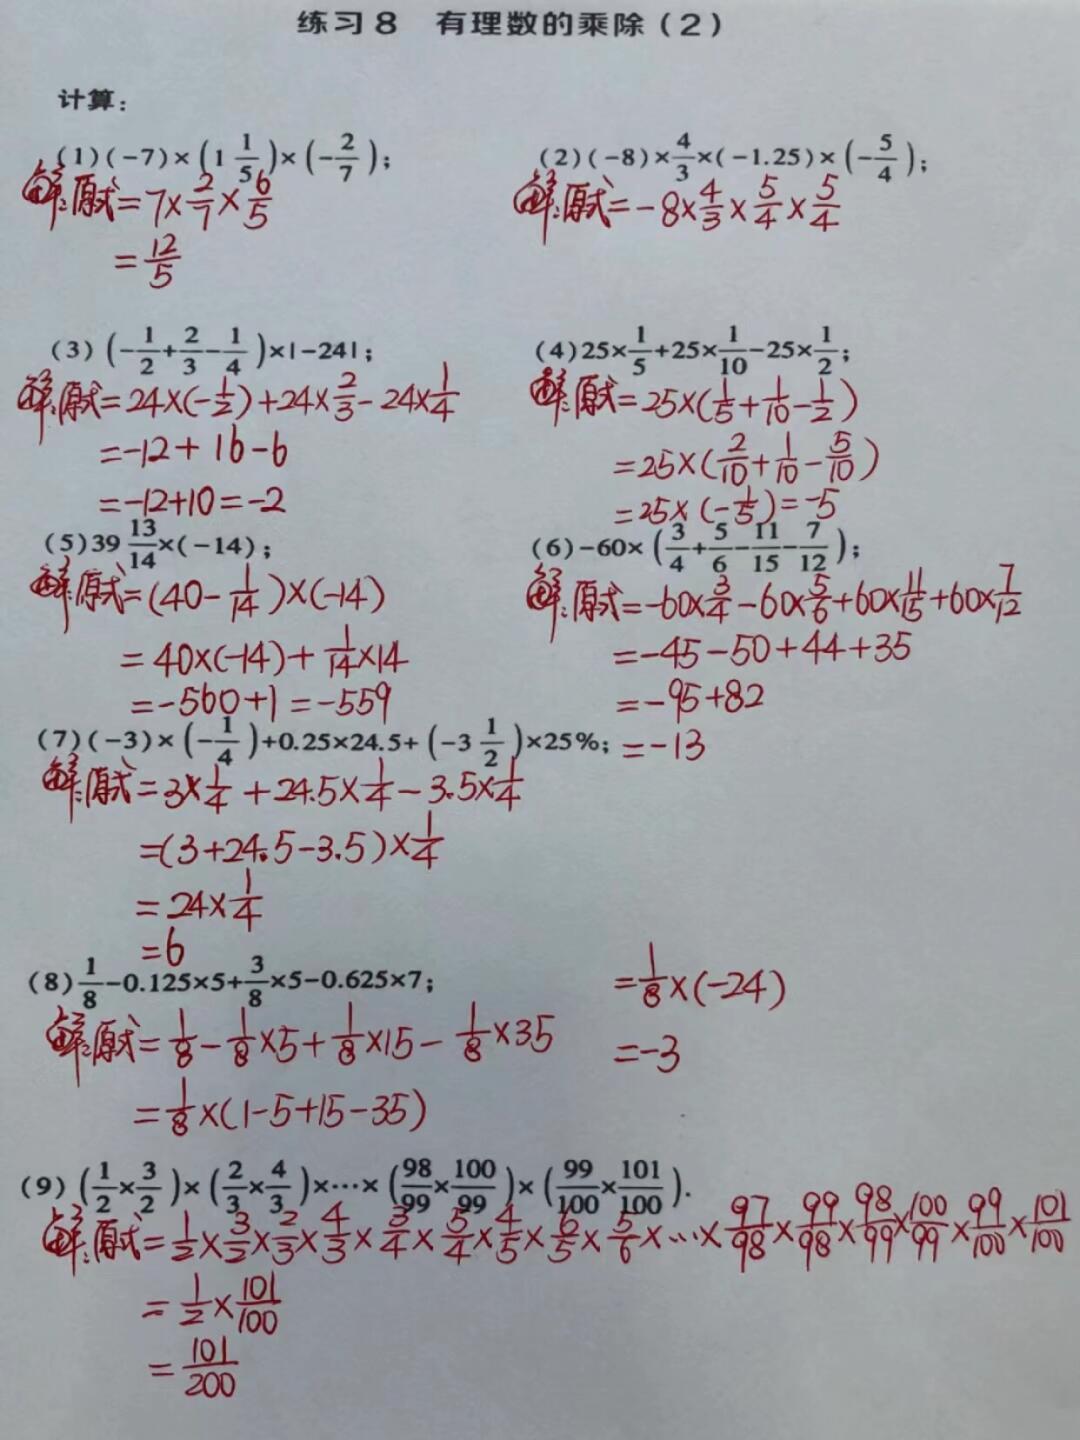 练习8 有理数的乘除(2)
计算:
(1)(-7)×(1 1/5)×(-2/7);
解:原式=7×2/7×6/5
=12/5
(2)(-8)×4/3×(-1.25)×(-5/4);
解:原式=-8×4/3×5/4×5/4
(3)(-1/2+2/3-1/4)×|-24|;
解:原式=24×(-1/2)+24×2/3-24×1/4
=-12+16-6
=-12+10=-2
(4)25×1/5+25×1/10-25×1/2;
解:原式=25×(1/5+1/10-1/2)
=25×(2/10+1/10-5/10)
=25×(-1/5)=-5
(5)39 13/14×(-14);
解:原式=(40-1/14)×(-14)
=40×(-14)+1/14×14
=-560+1=-559
(6)-60×(3/4+5/6-11/15-7/12);
解:原式=-60×3/4-60×5/6+60×11/15+60×7/12
=-45-50+44+35
=-95+82
=-13
(7)(-3)×(-1/4)+0.25×24.5+(-3 1/2)×25%;
解:原式=3×1/4+24.5×1/4-3.5×1/4
=(3+24.5-3.5)×1/4
=24×1/4
=6
(8)1/8-0.125×5+3/8×5-0.625×7;
解:原式=1/8-1/8×5+1/8×15-1/8×35
=1/8×(1-5+15-35)
=1/8×(-24)
=-3
(9)(1/2×3/2)×(2/3×4/3)×…×(98/99×100/99)×(99/100×101/100).
解:原式=1/2×3/2×2/3×4/3×3/4×5/4×4/5×6/5×5/6×…×97/98×99/98×98/99×100/99×99/100×101/100
=1/2×101/100
=101/200